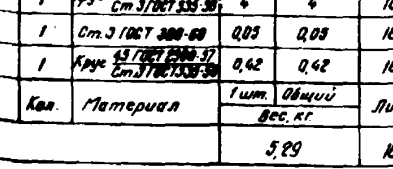 Ст.3 ГОСТ 535-58 4 4
1 Ст.3 ГОСТ 380-60 0,05 0,05
1 Круг 45 ГОСТ 2590-57 0,42 0,42
Ст.3 ГОСТ 535-58
Кол. Материал 1 шт. Общий
Вес, кг.
5,29